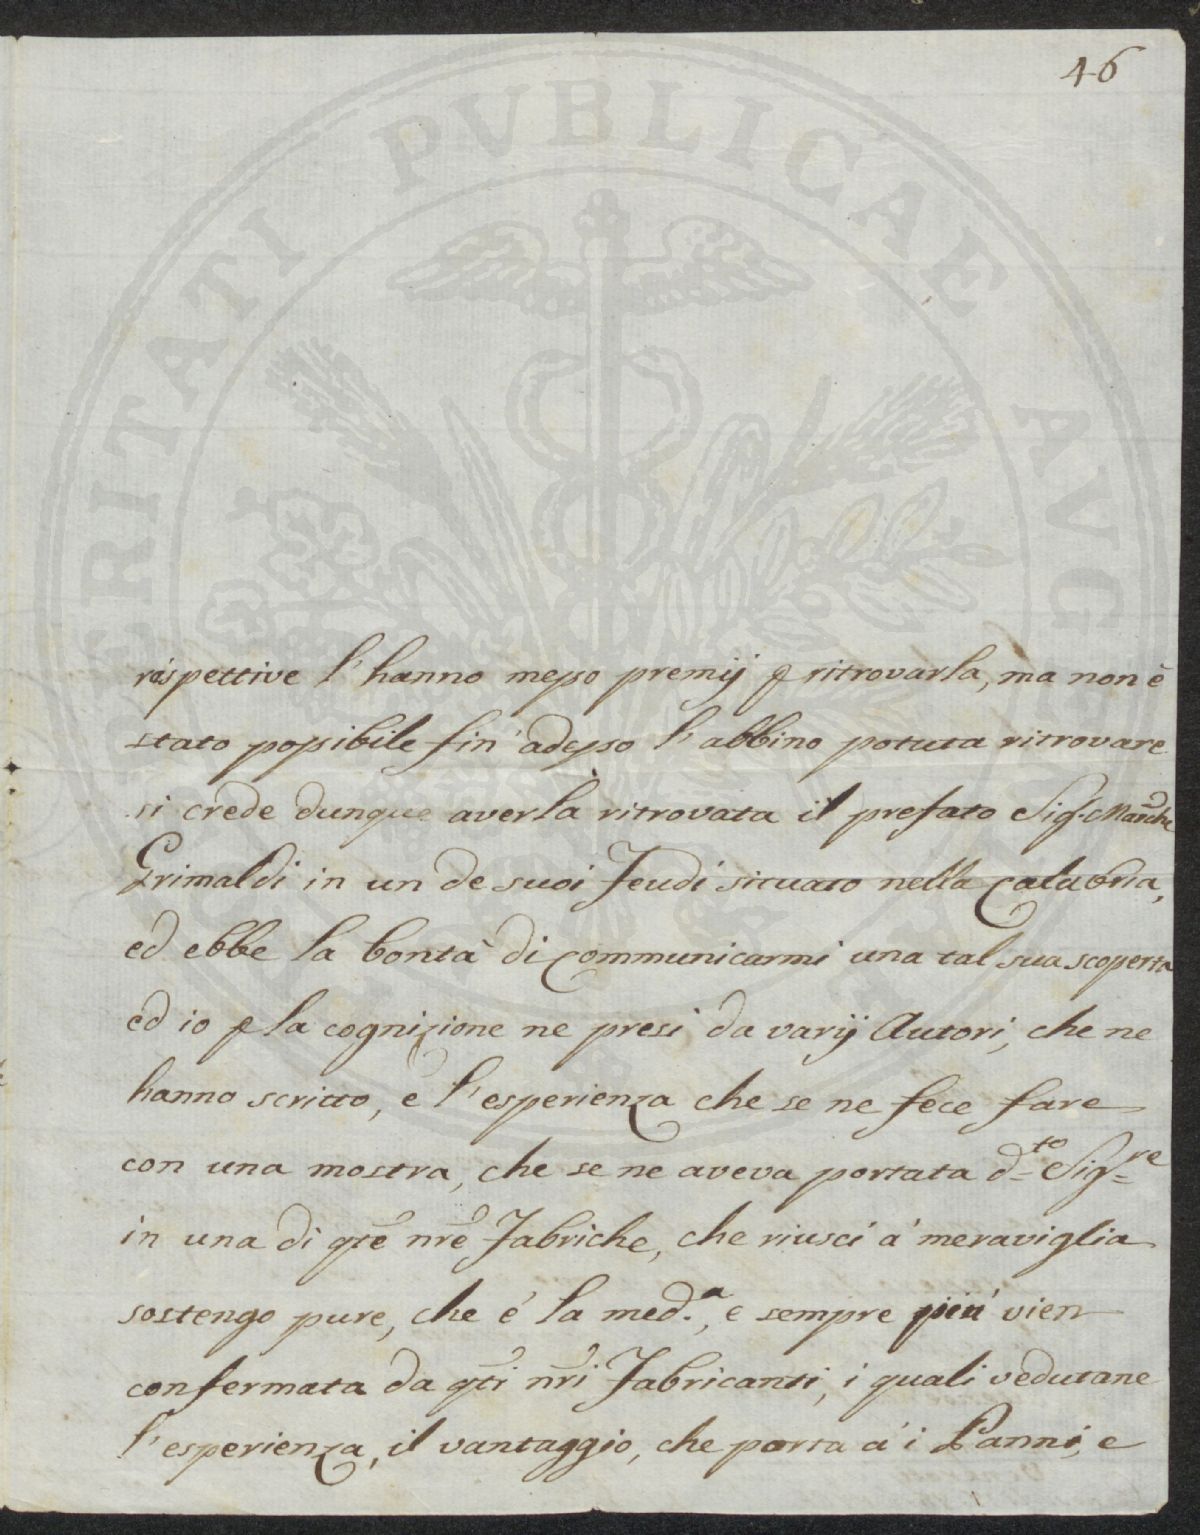 46
PROSPERITATI PUBLICAE AUGENDAE
rispettive l'hanno messo premij p ritrovarla, ma non è
stato possibile fin' adesso l'abbino potuta ritrovare
si crede dunque averla ritrovata il prefato Sig. Marche
Grimaldi in un de suoi Feudi situato nella Calabria,
ed ebbe la bontà di communicarmi una tal sua scoperta
ed io p la cognizione ne presi da varij Autori, che ne
hanno scritto, e l'esperienza che se ne fece fare
con una mostra, che se ne aveva portata d.to Sig.re
in una di qte nre Fabriche, che riusci á meraviglia
sostengo pure, che é la med.a, e sempre piú vien
confermata da qti nri Fabricanti, i quali vedutane
l'esperienza, il vantaggio, che porta á i Panni, e